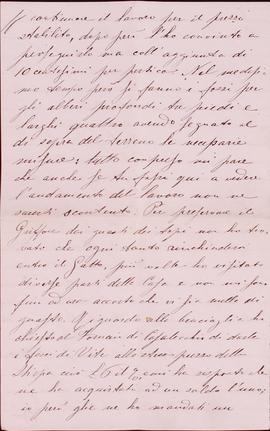 continuare il lavoro per il prezzo
stabilito, dopo però l'ho convinto a
proseguirlo ma coll'aggiunta di
10 centesimi per pertica. Nel medesi-
mo tempo però si fanno i fossi per
gli alberi profondi tre piedi e
larghi quattro avendo segnato al
di sopra del terreno le
misure; tutto compreso mi pare
che anche se tu fossi qui a vedere
l'andamento del lavoro non ne
saresti scontento. Per preservare il
dai guasti dei topi non ho tro-
vato che ogni tanto rinchiudere
entro il Gatto, più volte ho visitato
diverse parti della Casa e non mi son
fin ad ora accorto che vi sia nulla di
guasto. Riguardo alle ho
chiesto al di
e di Vite allo stesso prezzo della
Stipa cioè mi rispose che
ne ha acquistati ad un soldo l'uno;
io però che ne ha mandati un